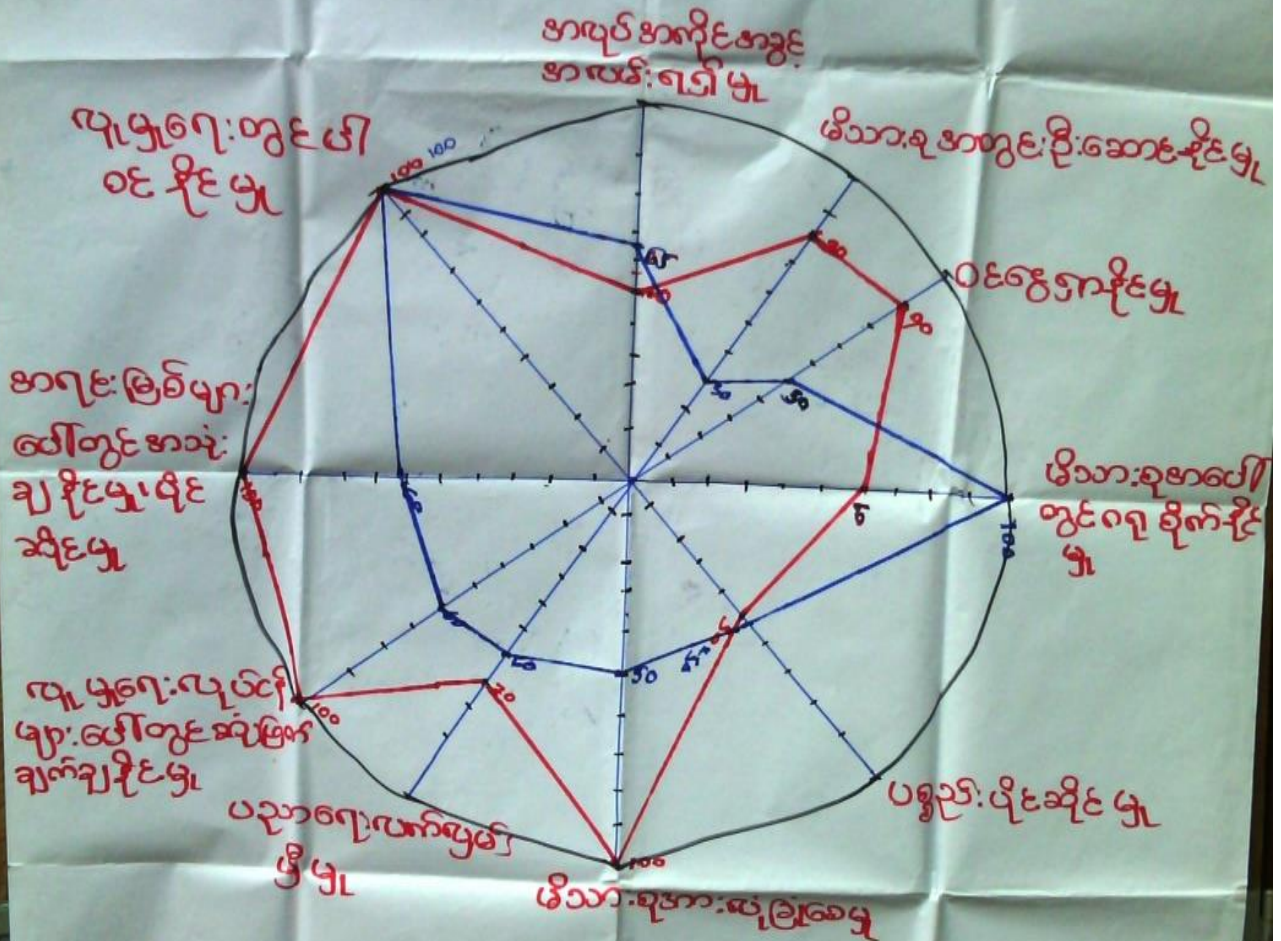 အလုပ်အကိုင်အခွင့်
အလမ်းရရှိမှု
မိသားစုအတွင်းဦးဆောင်နိုင်မှု
ဝင်ငွေရှာနိုင်မှု
မိသားစုအပေါ်
တွင်ဂရုစိုက်နိုင်
မှု
ပစ္စည်းပိုင်ဆိုင်မှု
မိသားစုအားလုံခြုံစေမှု
ပညာရေးလက်လှမ်း
မှီမှု
လူမှုရေးလုပ်ငန်း
များပေါ်တွင်ဆုံးဖြတ်
ချက်ချနိုင်မှု
အရင်းမြစ်များ
ပေါ်တွင်အသုံး
ချနိုင်မှု၊ပိုင်
ဆိုင်မှု
လူမှုရေးတွင်ပါ
ဝင်နိုင်မှု
100
100
30
50
100
50
100
100